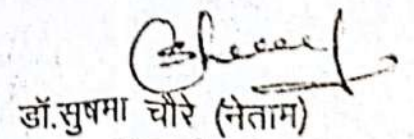 डॉ.सुषमा चौरे (नेताम)